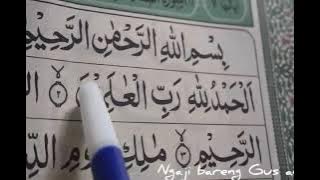 بِسْمِ اللهِ الرَّحْمٰنِ الرَّحِيْمِ
اَلْحَمْدُ لِلّٰهِ رَبِّ الْعٰلَمِيْنَ ٢
الرَّحِيْمِ ٣ مٰلِكِ يَوْمِ
Ngaji bareng Gus